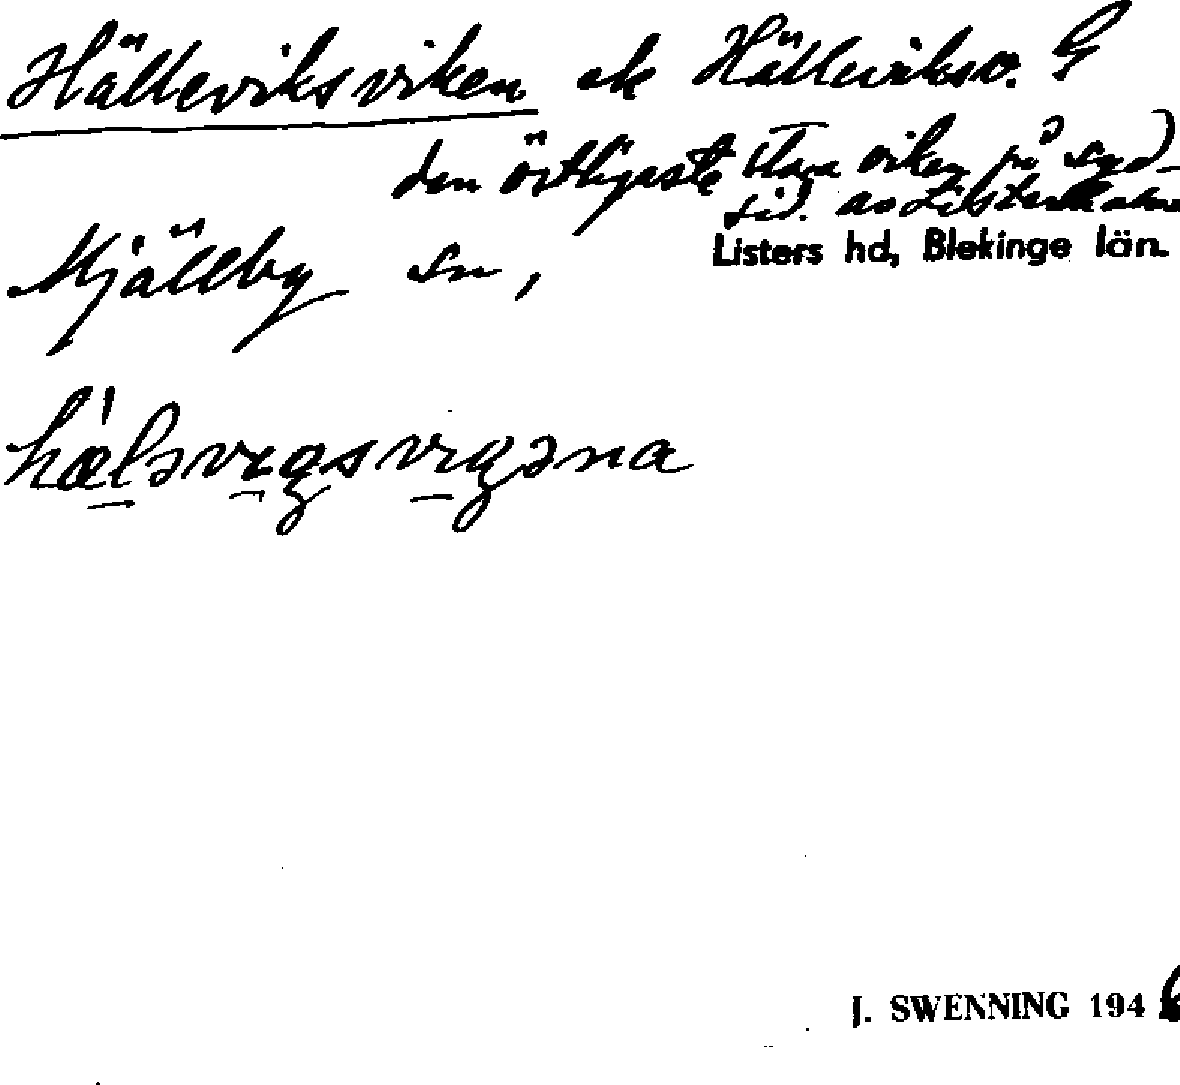 Hälleviksviken ek Hälleviksv. G
den östligaste stora viken på syd-
sid. av Listerlandet
Mjällby sn,
Listers hd, Blekinge län.
hæləvıgsvıgəna
J. SWENNING 194